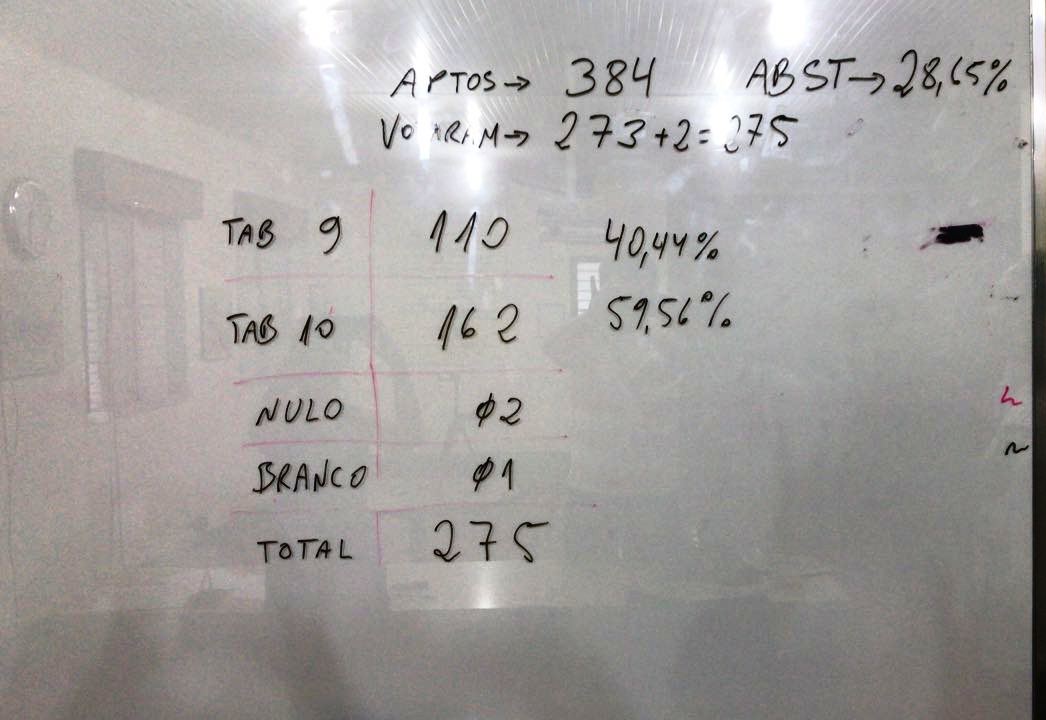 APTOS → 384 ABST → 28,65%
VOTARAM → 273 + 2 = 275
TAB 9 110 40,44%
TAB 10 162 59,56%
NULO 02
BRANCO 01
TOTAL 275